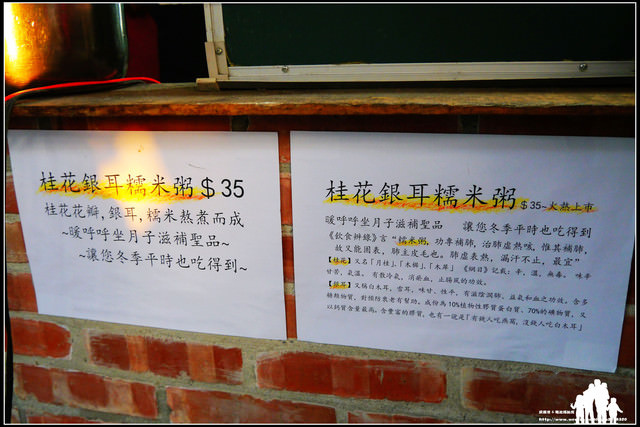 桂花銀耳糯米粥 $35
桂花花瓣,銀耳,糯米熬煮而成
~暖呼呼坐月子滋補聖品~
~讓您冬季平時也吃得到~
桂花銀耳糯米粥 $35~火熱上市
暖呼呼坐月子滋補聖品 讓您冬季平時也吃得到
《飲食辨錄》言"糯米粥,功專補肺,治肺虛熱咳,惟其補肺,
故又能固表,肺主皮毛也。肺虛表熱,漏汗不止,最宜"
【桂花】又名「月桂」、「木樨」、「木犀」《綱目》記載:辛,溫,無毒。 味辛
甘苦,氣溫。 有散冷氣,消瘀血,止腸風的功效。
【銀耳】又稱白木耳,雪耳,味甘、性平,有滋陰潤肺,益氣和血之功效。含多
種醣物質,對預防衰老有幫助。成份為10%植物性膠質蛋白質,70%的礦物質,又
以鈣質含量最高。含豐富的膠質,也有一說是「有錢人吃燕窩,沒錢人吃白木耳」